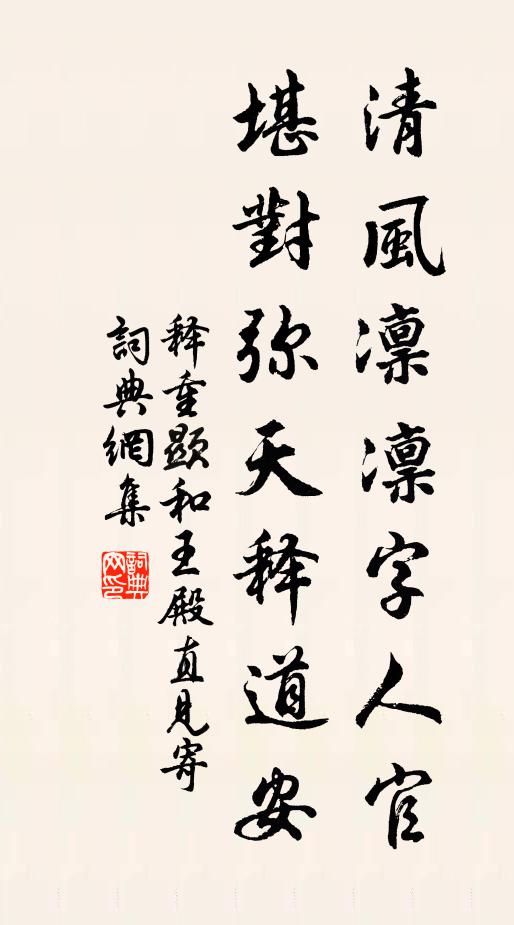 清風凛凛字人官
堪對弥天释道安
释重顯和王殿直見寄
詞典網集
詞典网印